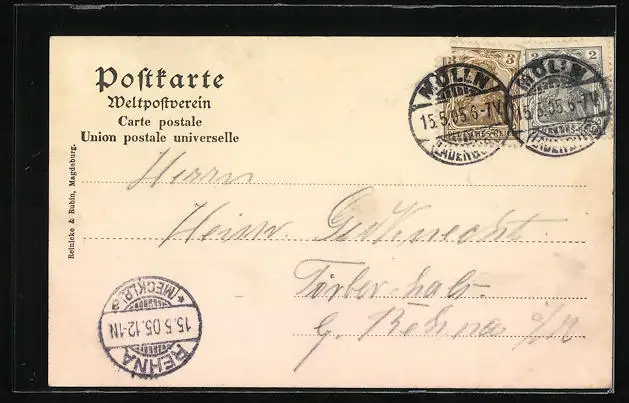 Postkarte
Weltpostverein
Carte postale
Union postale universelle
Reinicke & Rubin, Magdeburg.
3
2
MÖLLN
15.5.05.6-7V.
MÖLLN
15.5.05.6-7V.
Herrn
Heinr.
b. Rehna i/M
REHNA
15.5.05.12-1N
* (MECKLB.)